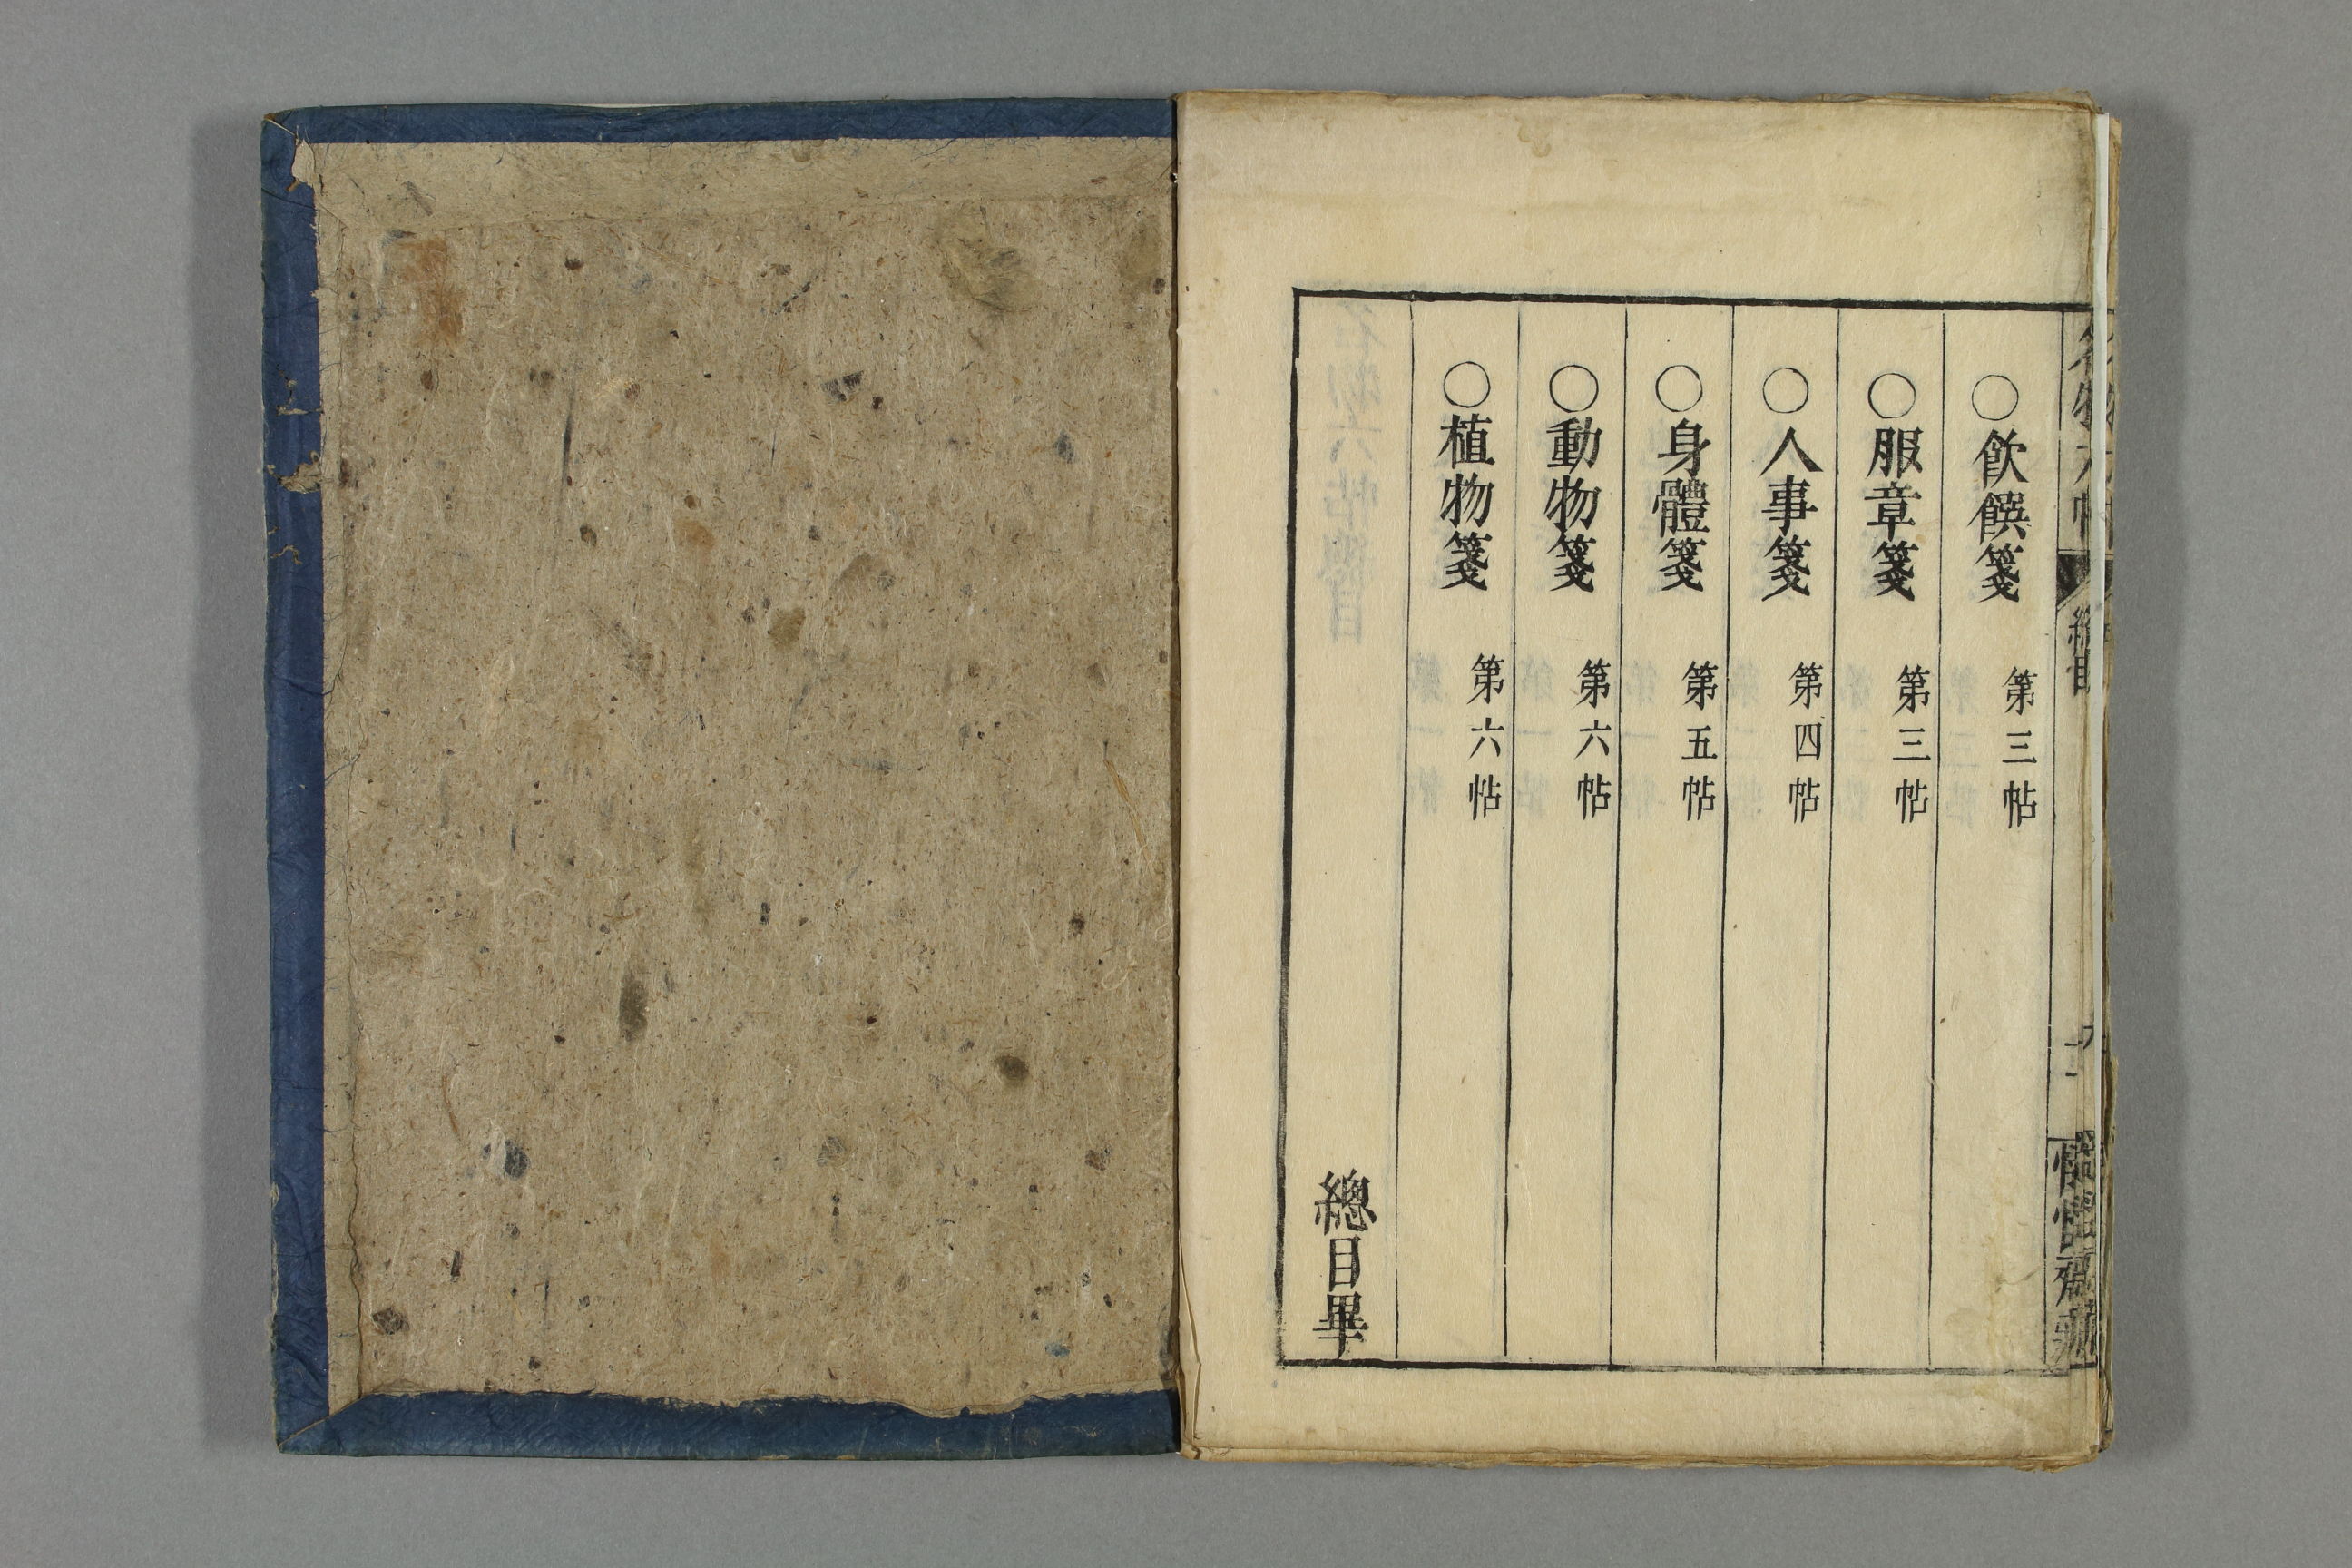 名物六帖
總目
二
○飲饌箋 第三帖
○服章箋 第三帖
○人事箋 第四帖
○身體箋 第五帖
○動物箋 第六帖
○植物箋 第六帖
總目畢